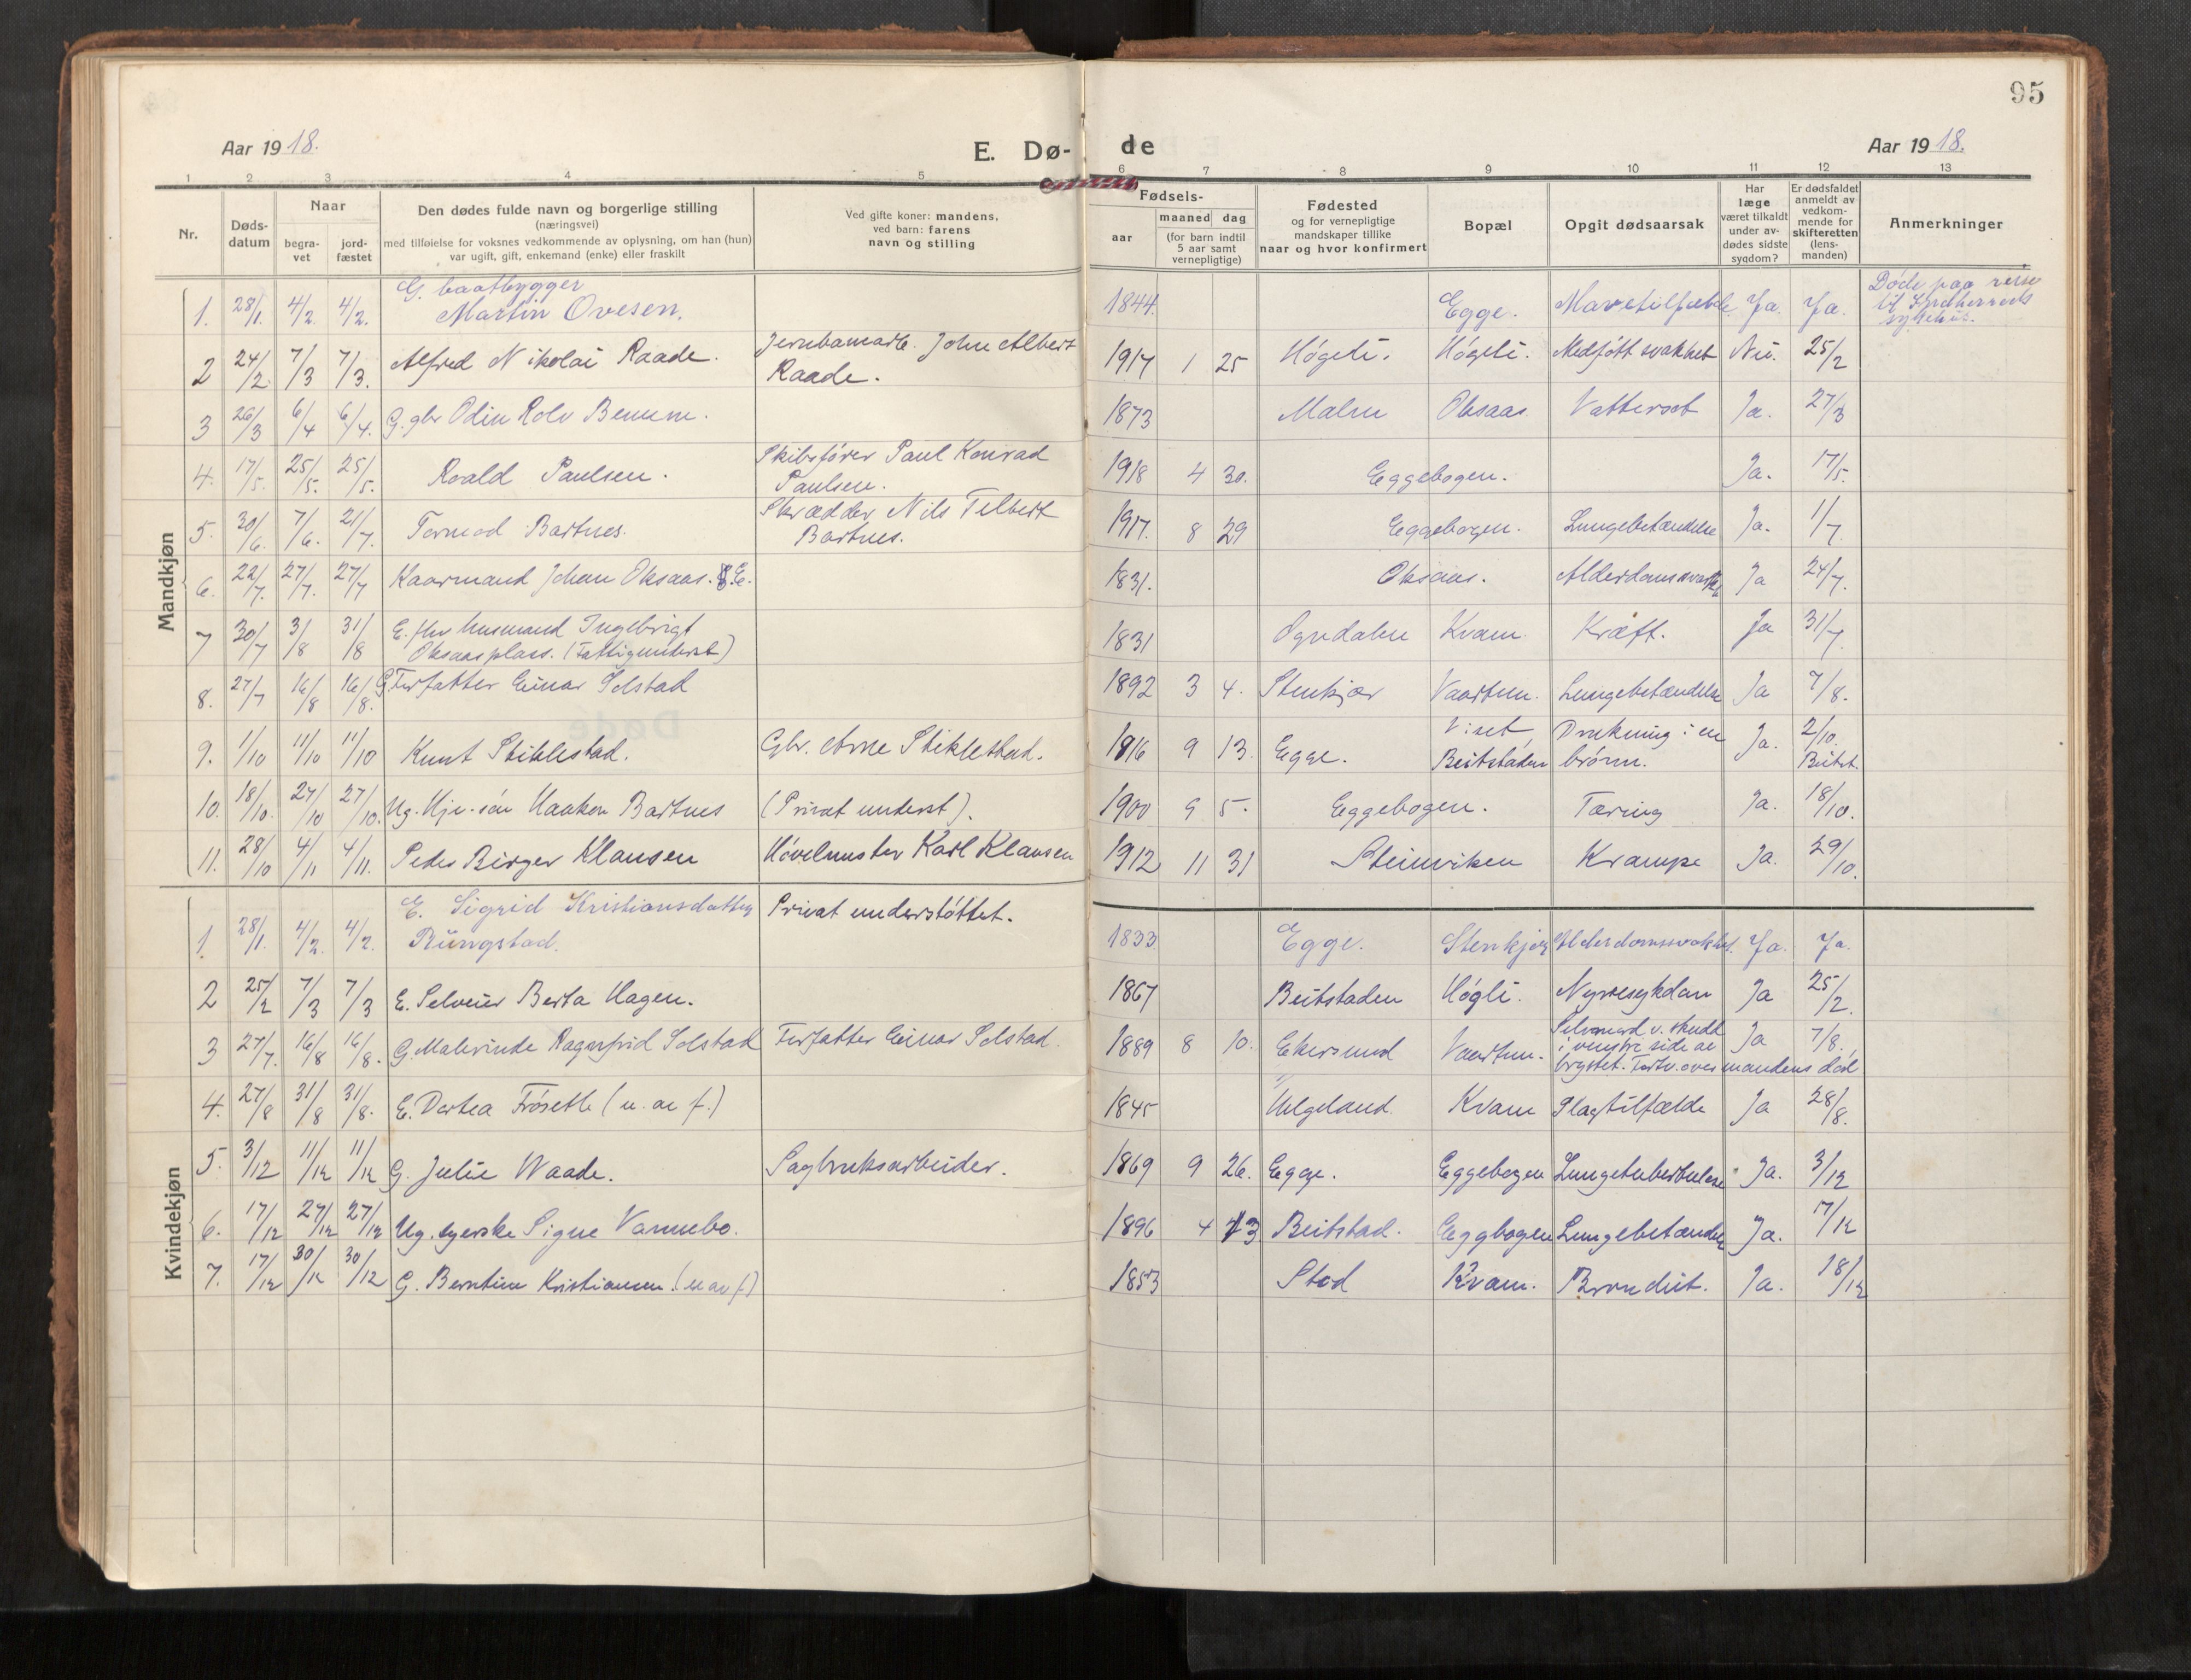 95
Aar 1918.
E. Dø-
de
Aar 1918.
1 2 3 4 5 6 7 8 9 10 11 12 13
Nr.
Døds-
datum
Naar
begra-
vet
jord-
fæstet
Den dødes fulde navn og borgerlige stilling
(næringsvei)
med tilføielse for voksnes vedkommende av oplysning, om han (hun)
var ugift, gift, enkemand (enke) eller fraskilt
Ved gifte koner: mandens,
ved barn: farens
navn og stilling
Fødsels-
aar
maaned dag
(for barn indtil
5 aar samt
vernepligtige)
Fødested
og for vernepligtige
mandskaper tillike
naar og hvor konfirmert
Bopæl
Opgit dødsaarsak
Har
læge
været tilkaldt
under av-
dødes sidste
sygdom?
Er dødsfaldet
anmeldt av
vedkom-
mende for
skifteretten
(lens-
manden)
Anmerkninger
Mandkjøn
1. 28/1. 4/2. 4/2. G. baatbygger
Martin Ovesen. 1844. Egge. Mavetilfælde. Ja. Ja. Døde paa reise
til Indherreds
sykehus.
2 24/2 7/3 7/3. Alfred Nikolai Raade. Jernbanearb. John Albert
Raade. 1917 1 25 Høgeti. Høgeti. Medføtt svakhet Nei. 25/2
3 26/3 6/4 6/4. G. gbr Odin Rolv Benum. 1873 Malm Oksaas Vattersot Ja. 27/3
4. 17/5. 25/5. 25/5. Roald Paulsen. Skibsfører Paul Konrad
Paulsen. 1918 4 30. Eggebogen. Ja. 17/5.
5. 30/6. 7/6. 21/7. Tormod Bartnes. Skrædder Nils
Bartnes. 1917. 8 29 Eggebogen. Lungebetændelse Ja. 1/7
6. 22/7. 27/7. 27/7 Kaarmand Johan Oksaas. E. 1831. Oksaas. Alderdomssvakh. Ja 24/7.
7 30/7 3/8 31/8 E. fhv husmand Ingebrigt
Oksaasplass. (Fattigunderst) 1831 Ogndalen Kvam. Kræft. Ja 31/7.
8. 27/7 16/8 16/8. G Forfatter Einar Solstad 1892 3 4. Stenkjær Vaartun. Lungebetændelse Ja 7/8.
9. 1/10 11/10 11/10 Knut Stiklestad. Gbr. Arne Stiklestad. 1916 9 13. Egge. Viset,
Beitstaden Drukning i en
brønn. Ja. 2/10.
Beitst.
10. 18/10. 27/10 27/10. Ug. Hje. søn Haakon Bartnes (Privat underst). 1900 9 5. Eggebogen. Tæring Ja. 18/10.
11. 28/10 4/11 4/11. Peder Birger Klausen Høvelmester Karl Klausen 1912 11 31 Steinviken Krampe Ja. 29/10.
Kvindekjøn
1. 28/1. 4/2. 4/2. E. Sigrid Kristiansdatter
Rüngstad. Privat understøttet. 1833 Egge. Stenkjær Alderdomssvakhet. Ja. Ja.
2 25/2 7/3 7/3 E. Selveier Berta Hagen. 1867 Beitstaden Høgli. Nyresykdom Ja 25/2.
3 27/7. 16/8 16/8. G. Malvinde Ragnfrid Solstad Forfatter Einar Solstad. 1889 8 10. Ekersund Vaartun. Selvmord v. skudd
i venstre side av
brystet. Fortv. over mandens død Ja 7/8.
4. 27/8 31/8 31/8. E. Dortea Frøseth (u. av f.) 1845 Helgeland. Kvam Slagtilfælde Ja 28/8.
5. 3/12 11/12 11/12 G. Julie Waade. Sagbruksarbeider. 1869 9 26. Egge. Eggebogen Lungetuberkulose Ja. 3/12
6. 17/12 27/12 27/12 Ug. syerske Signe Vannebo. 1896 4 13 Beitstad. Eggbogen Lungebetændelse Ja. 17/12
7. 17/12 30/12 30/12 G. Berntine Kristiansen. (u av f) 1853 Stod Kvam. Bronchit. Ja. 18/12